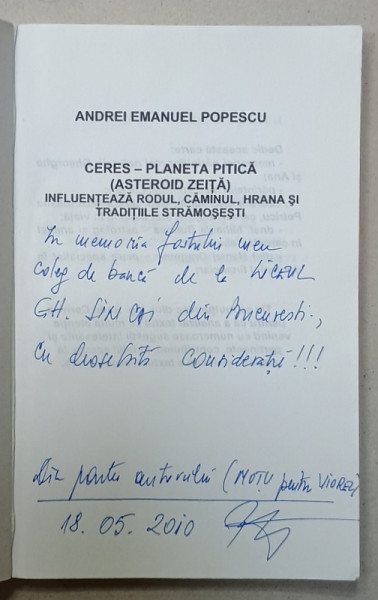 ANDREI EMANUEL POPESCU
CERES – PLANETA PITICĂ
(ASTEROID ZEIȚĂ)
INFLUENȚEAZĂ RODUL, CĂMINUL, HRANA ȘI
TRADIȚIILE STRĂMOȘEȘTI
In memoria fostului meu
coleg de bancă de la LICEUL
GH. ȘINCAI din București,
cu deosebită considerație!!!
Din partea autorului (MOȚU pentru VIOREL)
18.05.2010